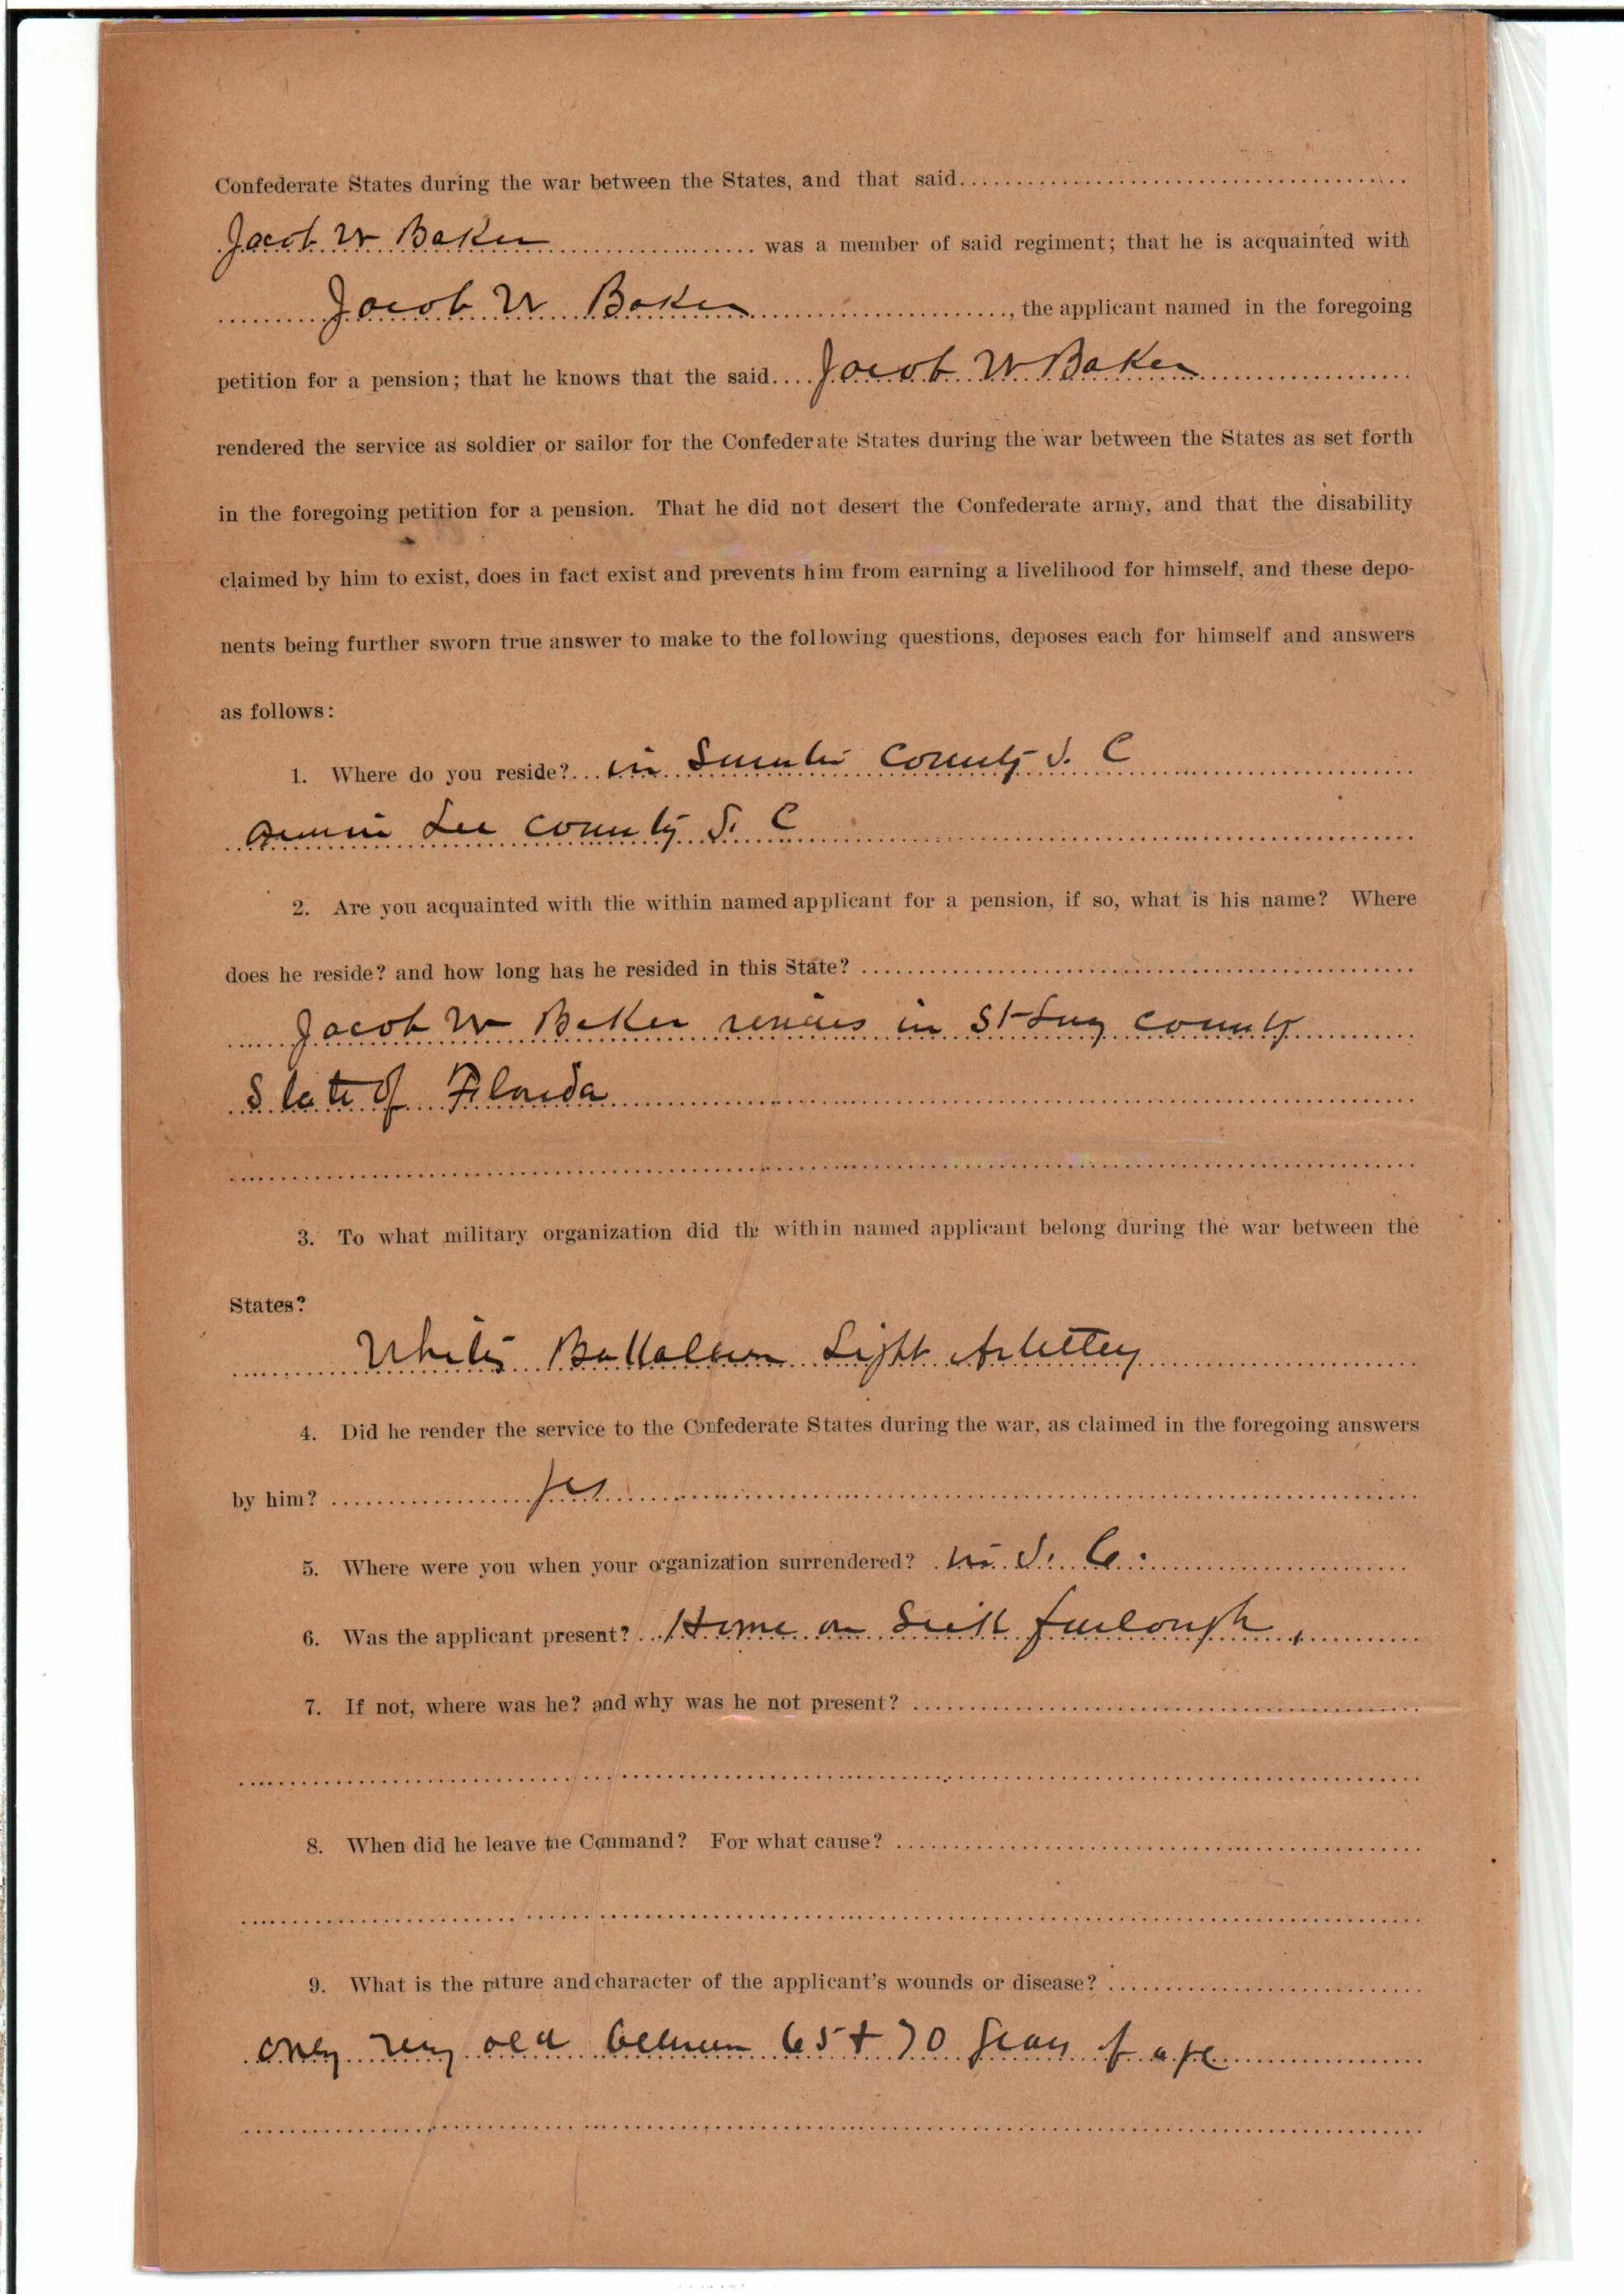 Confederate States during the war between the States, and that said
Jacob W Baker was a member of said regiment; that he is acquainted with
Jacob W Baker, the applicant named in the foregoing
petition for a pension; that he knows that the said Jacob W Baker
rendered the service as soldier or sailor for the Confederate States during the war between the States as set forth
in the foregoing petition for a pension. That he did not desert the Confederate army, and that the disability
claimed by him to exist, does in fact exist and prevents him from earning a livelihood for himself, and these depo-
nents being further sworn true answer to make to the following questions, deposes each for himself and answers
as follows:
1. Where do you reside? in Sumter County S. C
Lee County S. C
2. Are you acquainted with the within named applicant for a pension, if so, what is his name? Where
does he reside? and how long has he resided in this State?
Jacob W Baker resides in St Lucy County
State of Florida
3. To what military organization did the within named applicant belong during the war between the
States?
Battalion Light Artillery
4. Did he render the service to the Confederate States during the war, as claimed in the foregoing answers
by him? yes
5. Where were you when your organization surrendered? in S. C.
6. Was the applicant present? Home on Sick furlough,
7. If not, where was he? and why was he not present?
8. When did he leave the Command? For what cause?
9. What is the nature and character of the applicant's wounds or disease?
only very old between 65 + 70 years of age